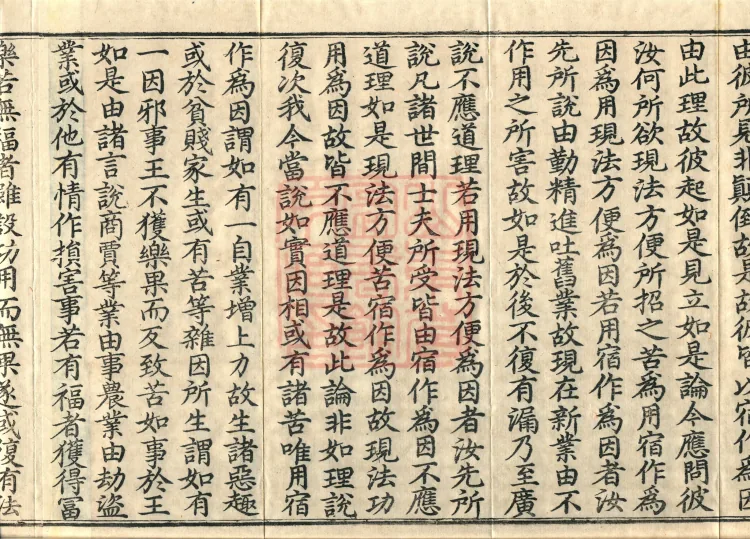 由彼所見非顛倒故是故彼皆以宿作爲因
由此理故彼起如是見立如是論今應問彼
汝何所欲現法方便所招之苦爲用宿作爲
因爲用現法方便爲因若用宿作爲因者汝
先所說由勤精進吐舊業故現在新業由不
作用之所害故如是於後不復有漏乃至廣
說不應道理若用現法方便爲因者汝先所
說凡諸世間士夫所受皆由宿作爲因不應
道理如是現法方便苦宿作爲因故現法功
用爲因故皆不應道理是故此論非如理說
復次我今當說如實因相或有諸苦唯用宿
作爲因謂如有一自業增上力故生諸惡趣
或於貧賤家生或有苦等雜因所生謂如有
一因邪事王不獲樂果而反致苦如事於王
如是由諸言說商賈等業由事農業由劫盜
業或於他有情作損害事若有福者獲得冨
樂若無福者雖設功用而無果遂或復有法